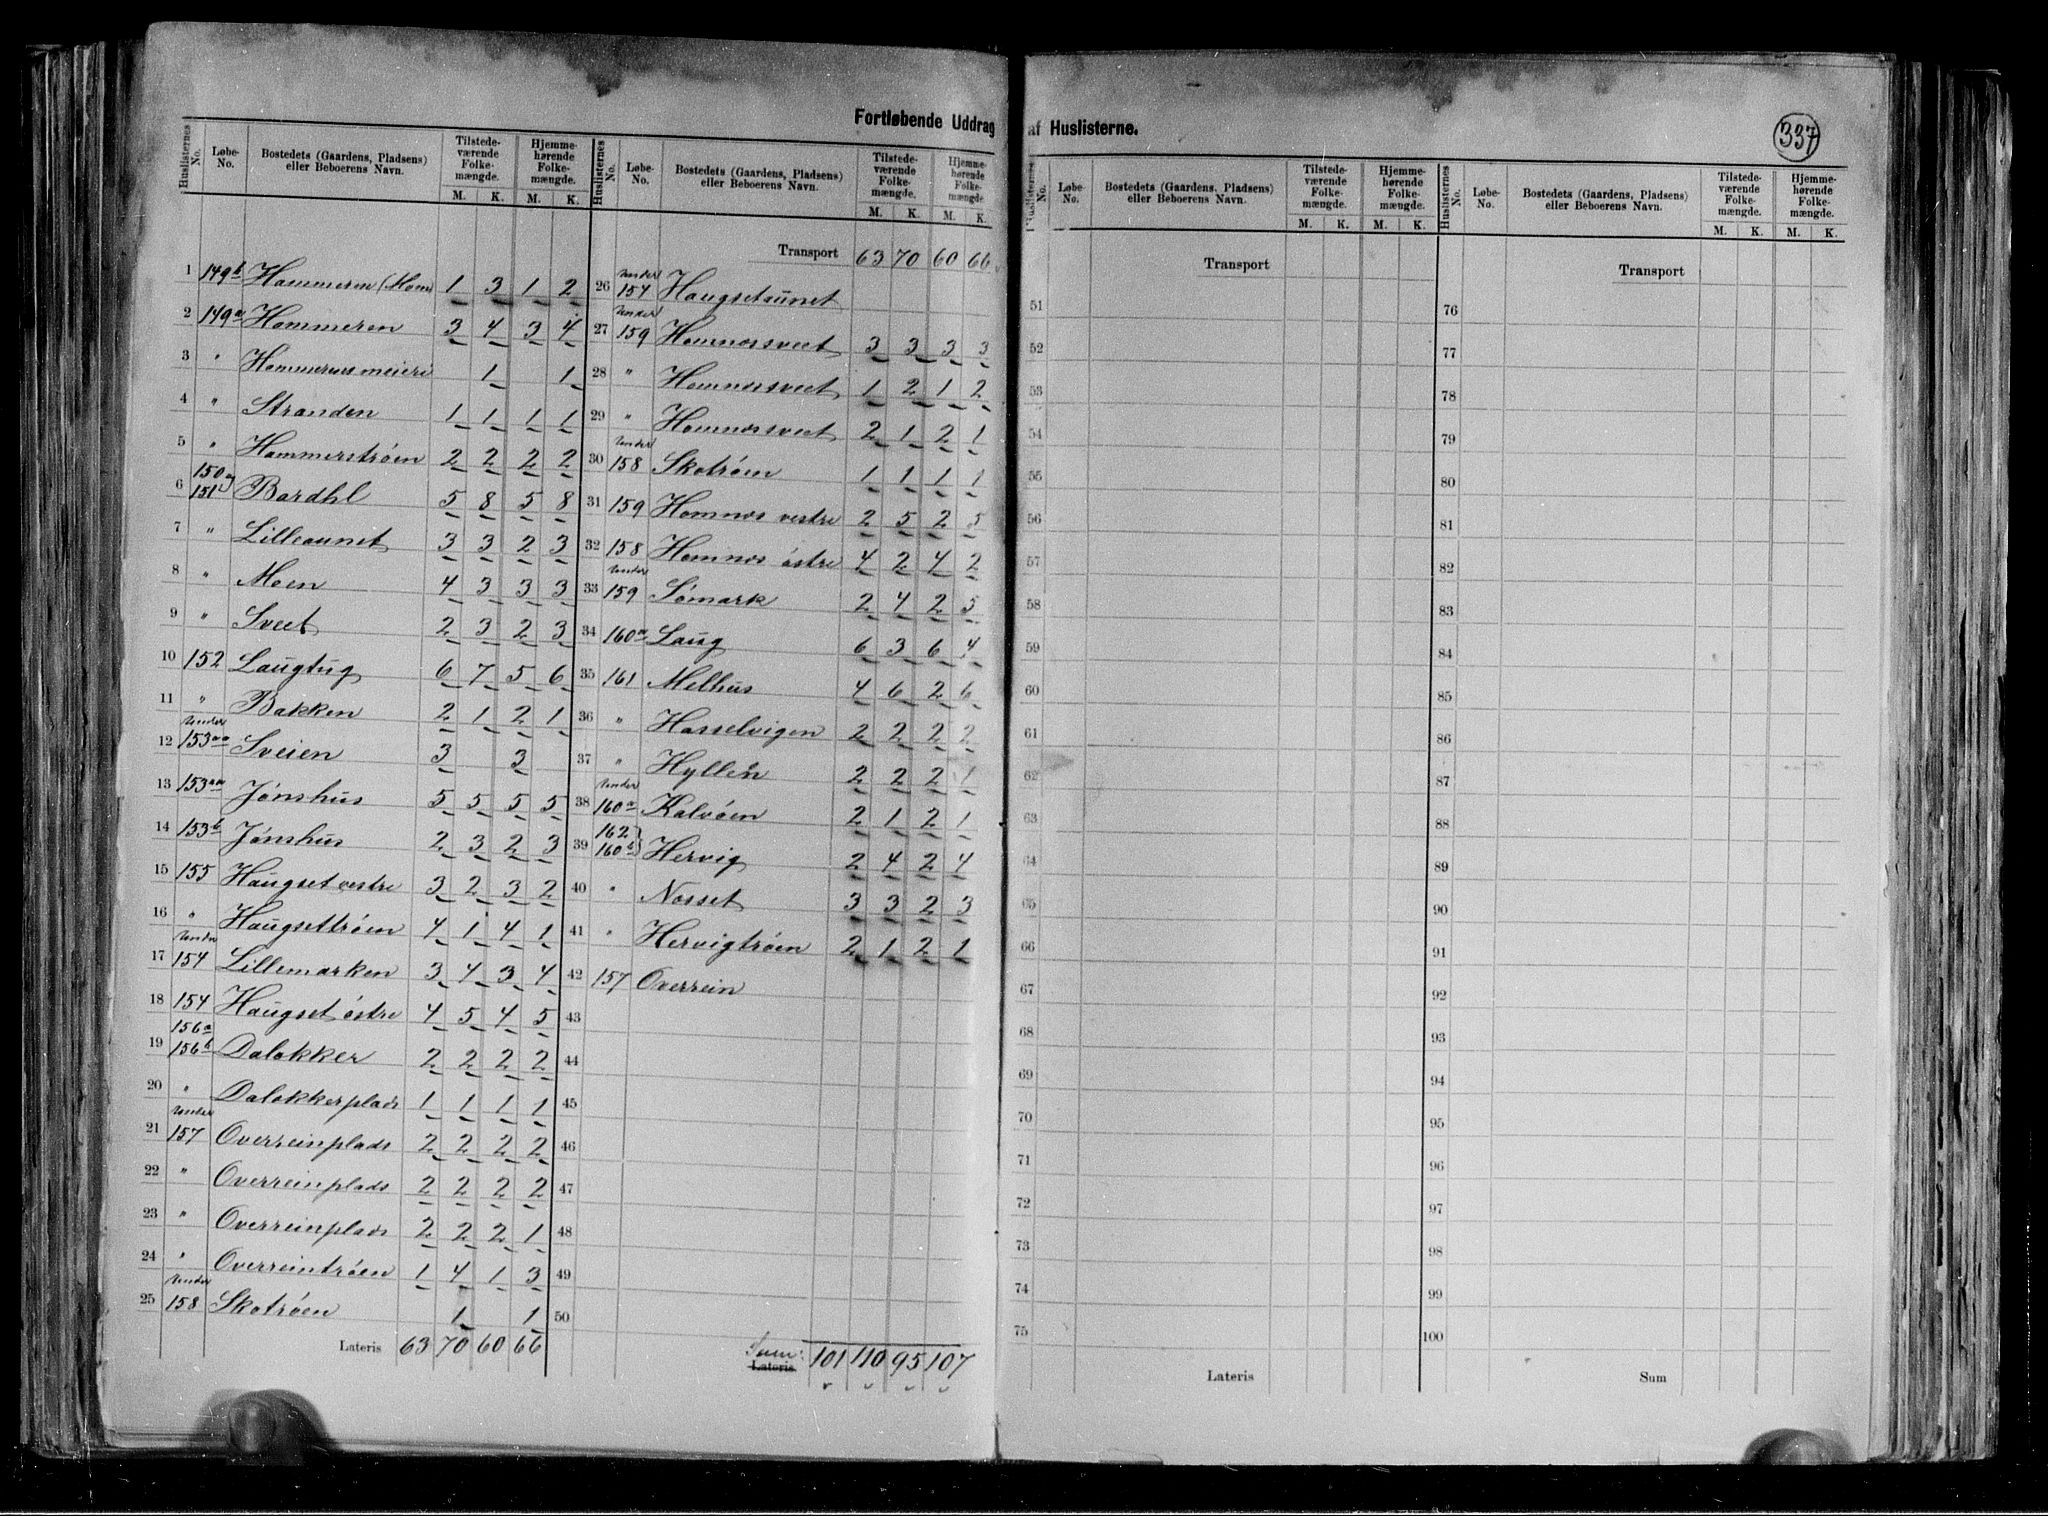 Fortløbende Uddrag af Huslisterne.
337
Huslisternes No. Løbe-No. Bostedets (Gaardens, Pladsens) eller Beboerens Navn. Tilstedeværende Folkemængde. M. K. Hjemmehørende Folkemængde. M. K.
1 149b Hammeren (Ham 1 3 1 2
2 149a Hammeren 3 4 3 4
3 " Hammerens meieri 1 1
4 " Stranden 1 1 1 1
5 " Hammerstrøen 2 2 2 2
6 150 151 Bardhl 5 8 5 8
7 " Lilleaunet 3 3 2 3
8 " Moen 4 3 3 3
9 " Sveet 2 3 2 3
10 152 Laugtug 6 7 5 6
11 " Bakken 2 1 2 1
12 under 153aa Sveien 3 3
13 153aa Jønshus 5 5 5 5
14 153b Jønshus 2 3 2 3
15 155 Haugset vestre 3 2 3 2
16 " Haugsettrøen 4 1 4 1
17 under 154 Lillemarken 3 4 3 4
18 154 Haugset østre 4 5 4 5
19 156a 156b Dalokker 2 2 2 2
20 " Dalokkerplads 1 1 1 1
21 under 157 Overreinplads 2 2 2 2
22 " Overreinplads 2 2 2 2
23 " Overreinplads 2 2 2 1
24 " Overreintrøen 1 4 1 3
25 under 158 Skotrøen 1 1
Lateris 63 70 60 66
Huslisternes No. Løbe-No. Bostedets (Gaardens, Pladsens) eller Beboerens Navn. Tilstedeværende Folkemængde. M. K. Hjemmehørende Folkemængde M. K.
Transport 63 70 60 66
26 under 154 Haugsetaunet
27 under 159 Hamnosveet 3 3 3 3
28 " Hamnosveet 1 2 1 2
29 " Hamnosveet 2 1 2 1
30 under 158 Skotrøen 1 1 1 1
31 159 Hamnos vestre 2 5 2 5
32 158 Hamnos østre 4 2 4 2
33 under 159 Sømark 2 4 2 5
34 160a Laug 6 3 6 4
35 161 Melhus 4 6 2 6
36 " Hasselvigen 2 2 2 2
37 " Hyllen 2 2 2 1
38 under 160a Kalvøen 2 1 2 1
39 162 160b Hervig 2 4 2 4
40 " Nosset 3 3 2 3
41 " Hervigtrøen 2 1 2 1
42 157 Overrein
43
44
45
46
47
48
49
50
Sum: Lateris 101 110 95 107
Huslisternes No. Løbe-No. Bostedets (Gaardens, Pladsens) eller Beboerens Navn. Tilstedeværende Folkemængde. M. K. Hjemmehørende Folkemængde. M. K.
Transport
51
52
53
54
55
56
57
58
59
60
61
62
63
64
65
66
67
68
69
70
71
72
73
74
75
Lateris
Huslisternes No. Løbe-No. Bostedets (Gaardens, Pladsens) eller Beboerens Navn. Tilstedeværende Folkemængde. M. K. Hjemmehørende Folkemængde. M. K.
Transport
76
77
78
79
80
81
82
83
84
85
86
87
88
89
90
91
92
93
94
95
96
97
98
99
100
Sum